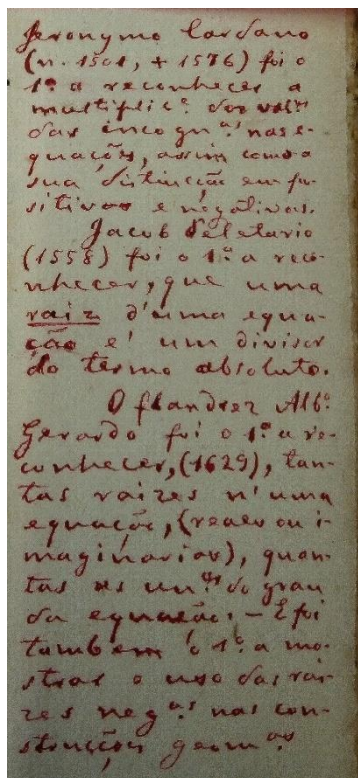 Jeronymo Cardano
(n. 1501, + 1576) foi o
1º. a reconhecer a
multiplic.ᵉ dos val.ᵉˢ
das incogn.ᵃˢ nas e-
quações, assim como a
sua distincção em po-
sitivas e negativas.
Jacob Peletario
(1558) foi o 1º. a reco-
nhecer, que uma
raiz d'uma equa-
ção é um divisor
do termo absoluto.
O flandrez Alb.º
Gerardo foi o 1º. a re-
conhecer, (1629), tan-
tas raizes n'uma
equação, (reaes ou i-
maginarias), quan-
tas as un.ᵉˢ do grau
da equação. – E foi
tambem o 1º. a mo-
strar o uso das rai-
zes neg.ᵃˢ nas con-
strucções geom.ᵃˢ